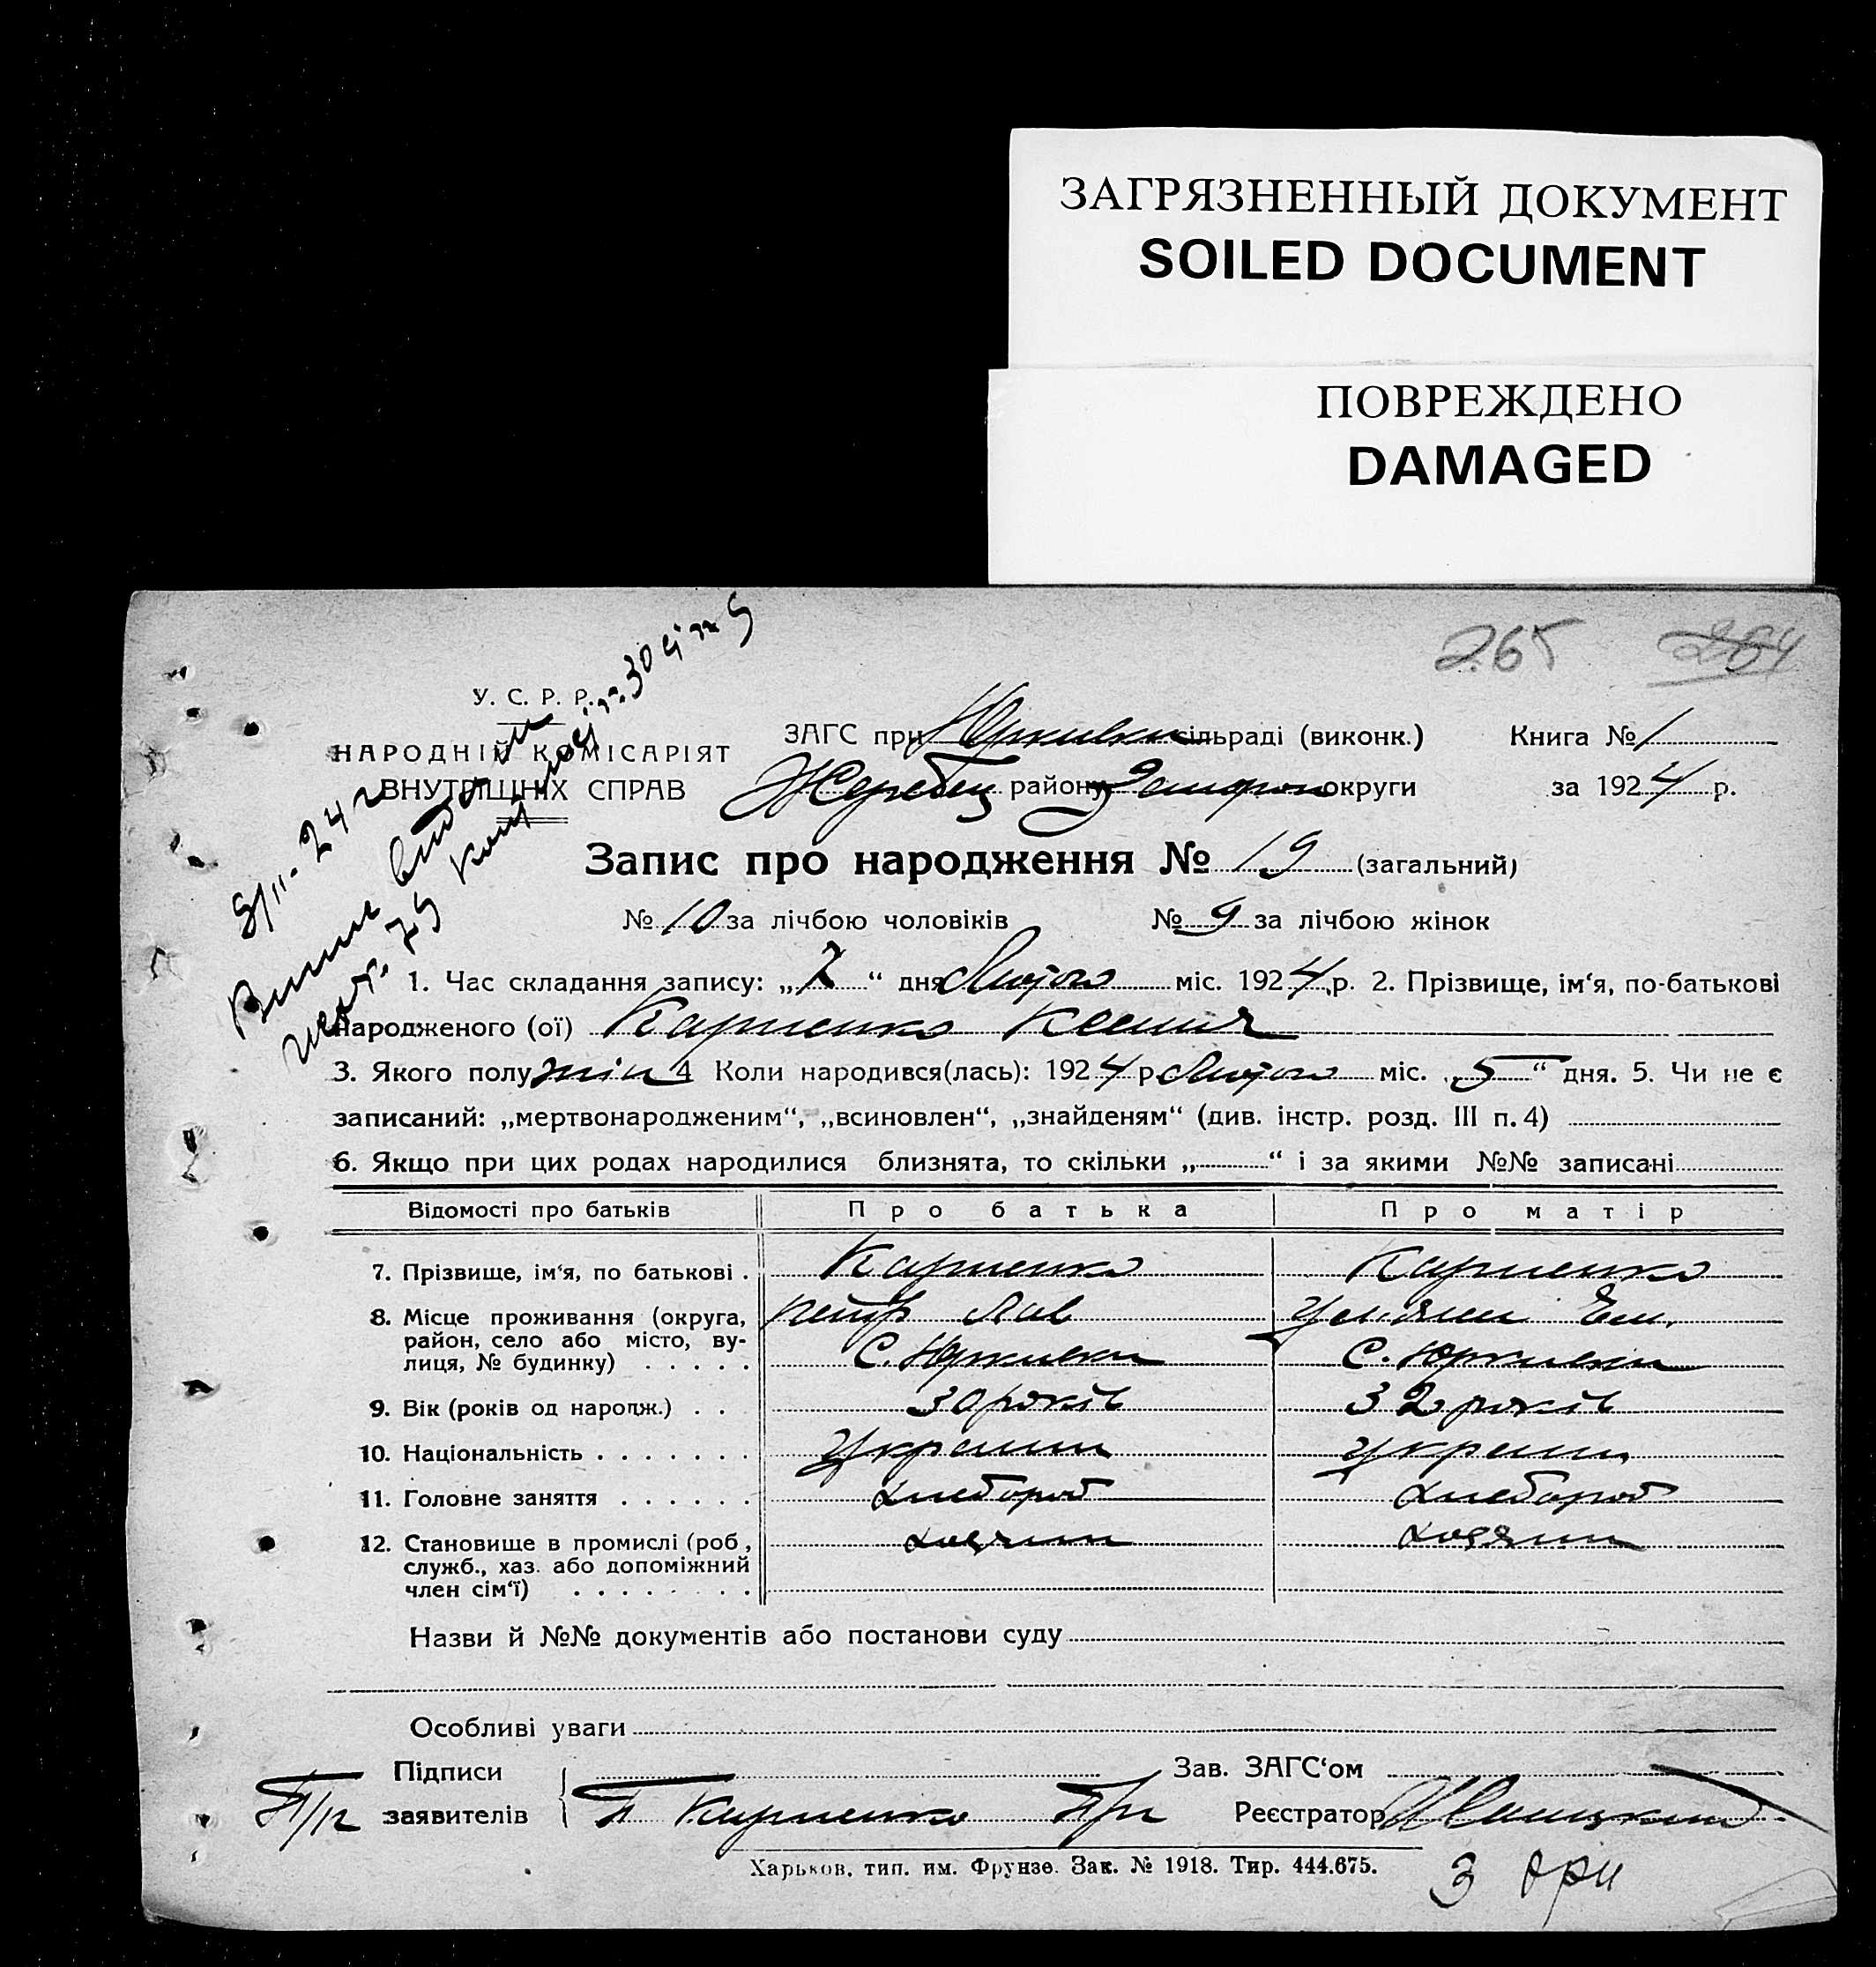 ЗАГРЯЗНЕННЫЙ ДОКУМЕНТ
SOILED DOCUMENT
ПОВРЕЖДЕНО
DAMAGED
265 264
У. С. Р. Р.
НАРОДНІЙ КОМІСАРІЯТ
ВНУТРІШНІХ СПРАВ
ЗАГС при Юркивки сільраді (виконк.) Книга № 1
Жеребец району Запорож округи за 1924 р.
8/II-24 г
Запис про народження № 19 (загальний)
№ 10 за лічбою чоловіків № 9 за лічбою жінок
1. Час складання запису: „7“ дня Лютого міс. 1924 р. 2. Прізвище, ім‘я, по-батькові
народженого (ої) Карпенко Ксения
3. Якого полу жін 4 Коли народився(лась): 1924 р Лютого міс. „5“ дня. 5. Чи не є
записаний: „мертвонародженим“, „всиновлен“, „знайденям“ (див. інстр. розд. III п. 4)
6. Якщо при цих родах народилися близнята, то скільки „ “ і за якими №№ записані
Відомості про батьків Про батька Про матір
7. Прізвище, ім‘я, по батькові . Карпенко Карпенко
8. Місце проживання (округа, район, село або місто, вулиця, № будинку) Петр С. Юркивки С. Юркивки
9. Вік (років од народж.) . . 30 років 32 років
10. Національність . . . . . . . Украинц Украин
11. Головне заняття . . . . . . Хлебороб Хлебороб
12. Становище в промислі (роб., служб., хаз. або допоміжний член сім‘ї) . . . . . . . . Хозяин Хозяин
Назви й №№ документів або постанови суду
Особливі уваги
Підписи Зав. ЗАГС‘ом
П/п заявителів П Карпенко П/п Реєстратор
Харьков, тип. им. Фрунзе. Зак. № 1918. Тир. 444.675.